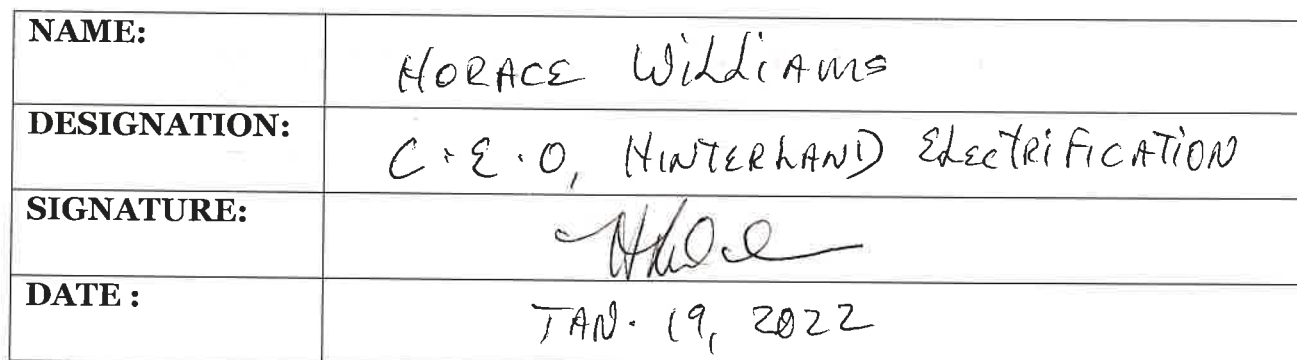 NAME: HORACE WilliAms
DESIGNATION: C.E.O, HINTERLAND ElecTRiFICATION
SIGNATURE:
DATE : JAN. 19, 2022